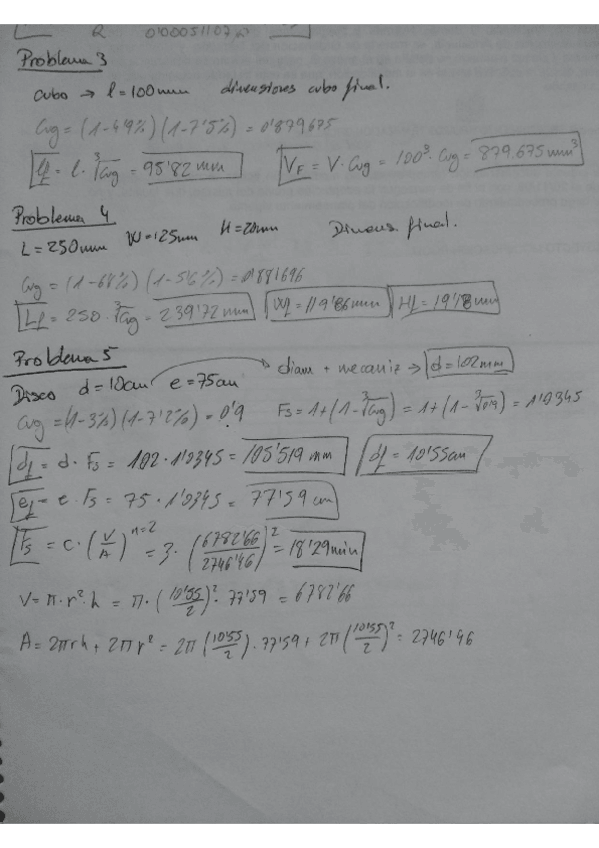 R 0'00051107
Problema 3
cubo → l = 100mm dimensiones cubo final.
Cvg = (1-4'9%)(1-7'5%) = 0'879675
lf = l · ∛Cvg = 95'82 mm VF = V · Cvg = 100³ · Cvg = 879.675 mm³
Problema 4
L = 250mm W = 125mm H = 20mm Dimens. final.
Cvg = (1-6'6%)(1-5'6%) = 0'881696
Lf = 250 · ∛Cvg = 239'72 mm Wf = 119'86mm Hf = 19'18mm
Problema 5
Disco d = 10cm e = 75cm diam + mecaniz → d = 102mm
Cvg = (1-3%)(1-7'2%) = 0'9 Fs = 1+(1-∛Cvg) = 1+(1-∛0'9) = 1'0345
df = d · Fs = 102 · 1'0345 = 105'519 mm df = 10'55cm
ef = e · Fs = 75 · 1'0345 = 77'59 cm
Ts = C · (V/A)ⁿ⁼² = 3 · (6782'66/2746'46)² = 18'29min
V = π·r²·h = π·(10'55/2)²·77'59 = 6782'66
A = 2πrh + 2πr² = 2π(10'55/2)·77'59 + 2π(10'55/2)² = 2746'46